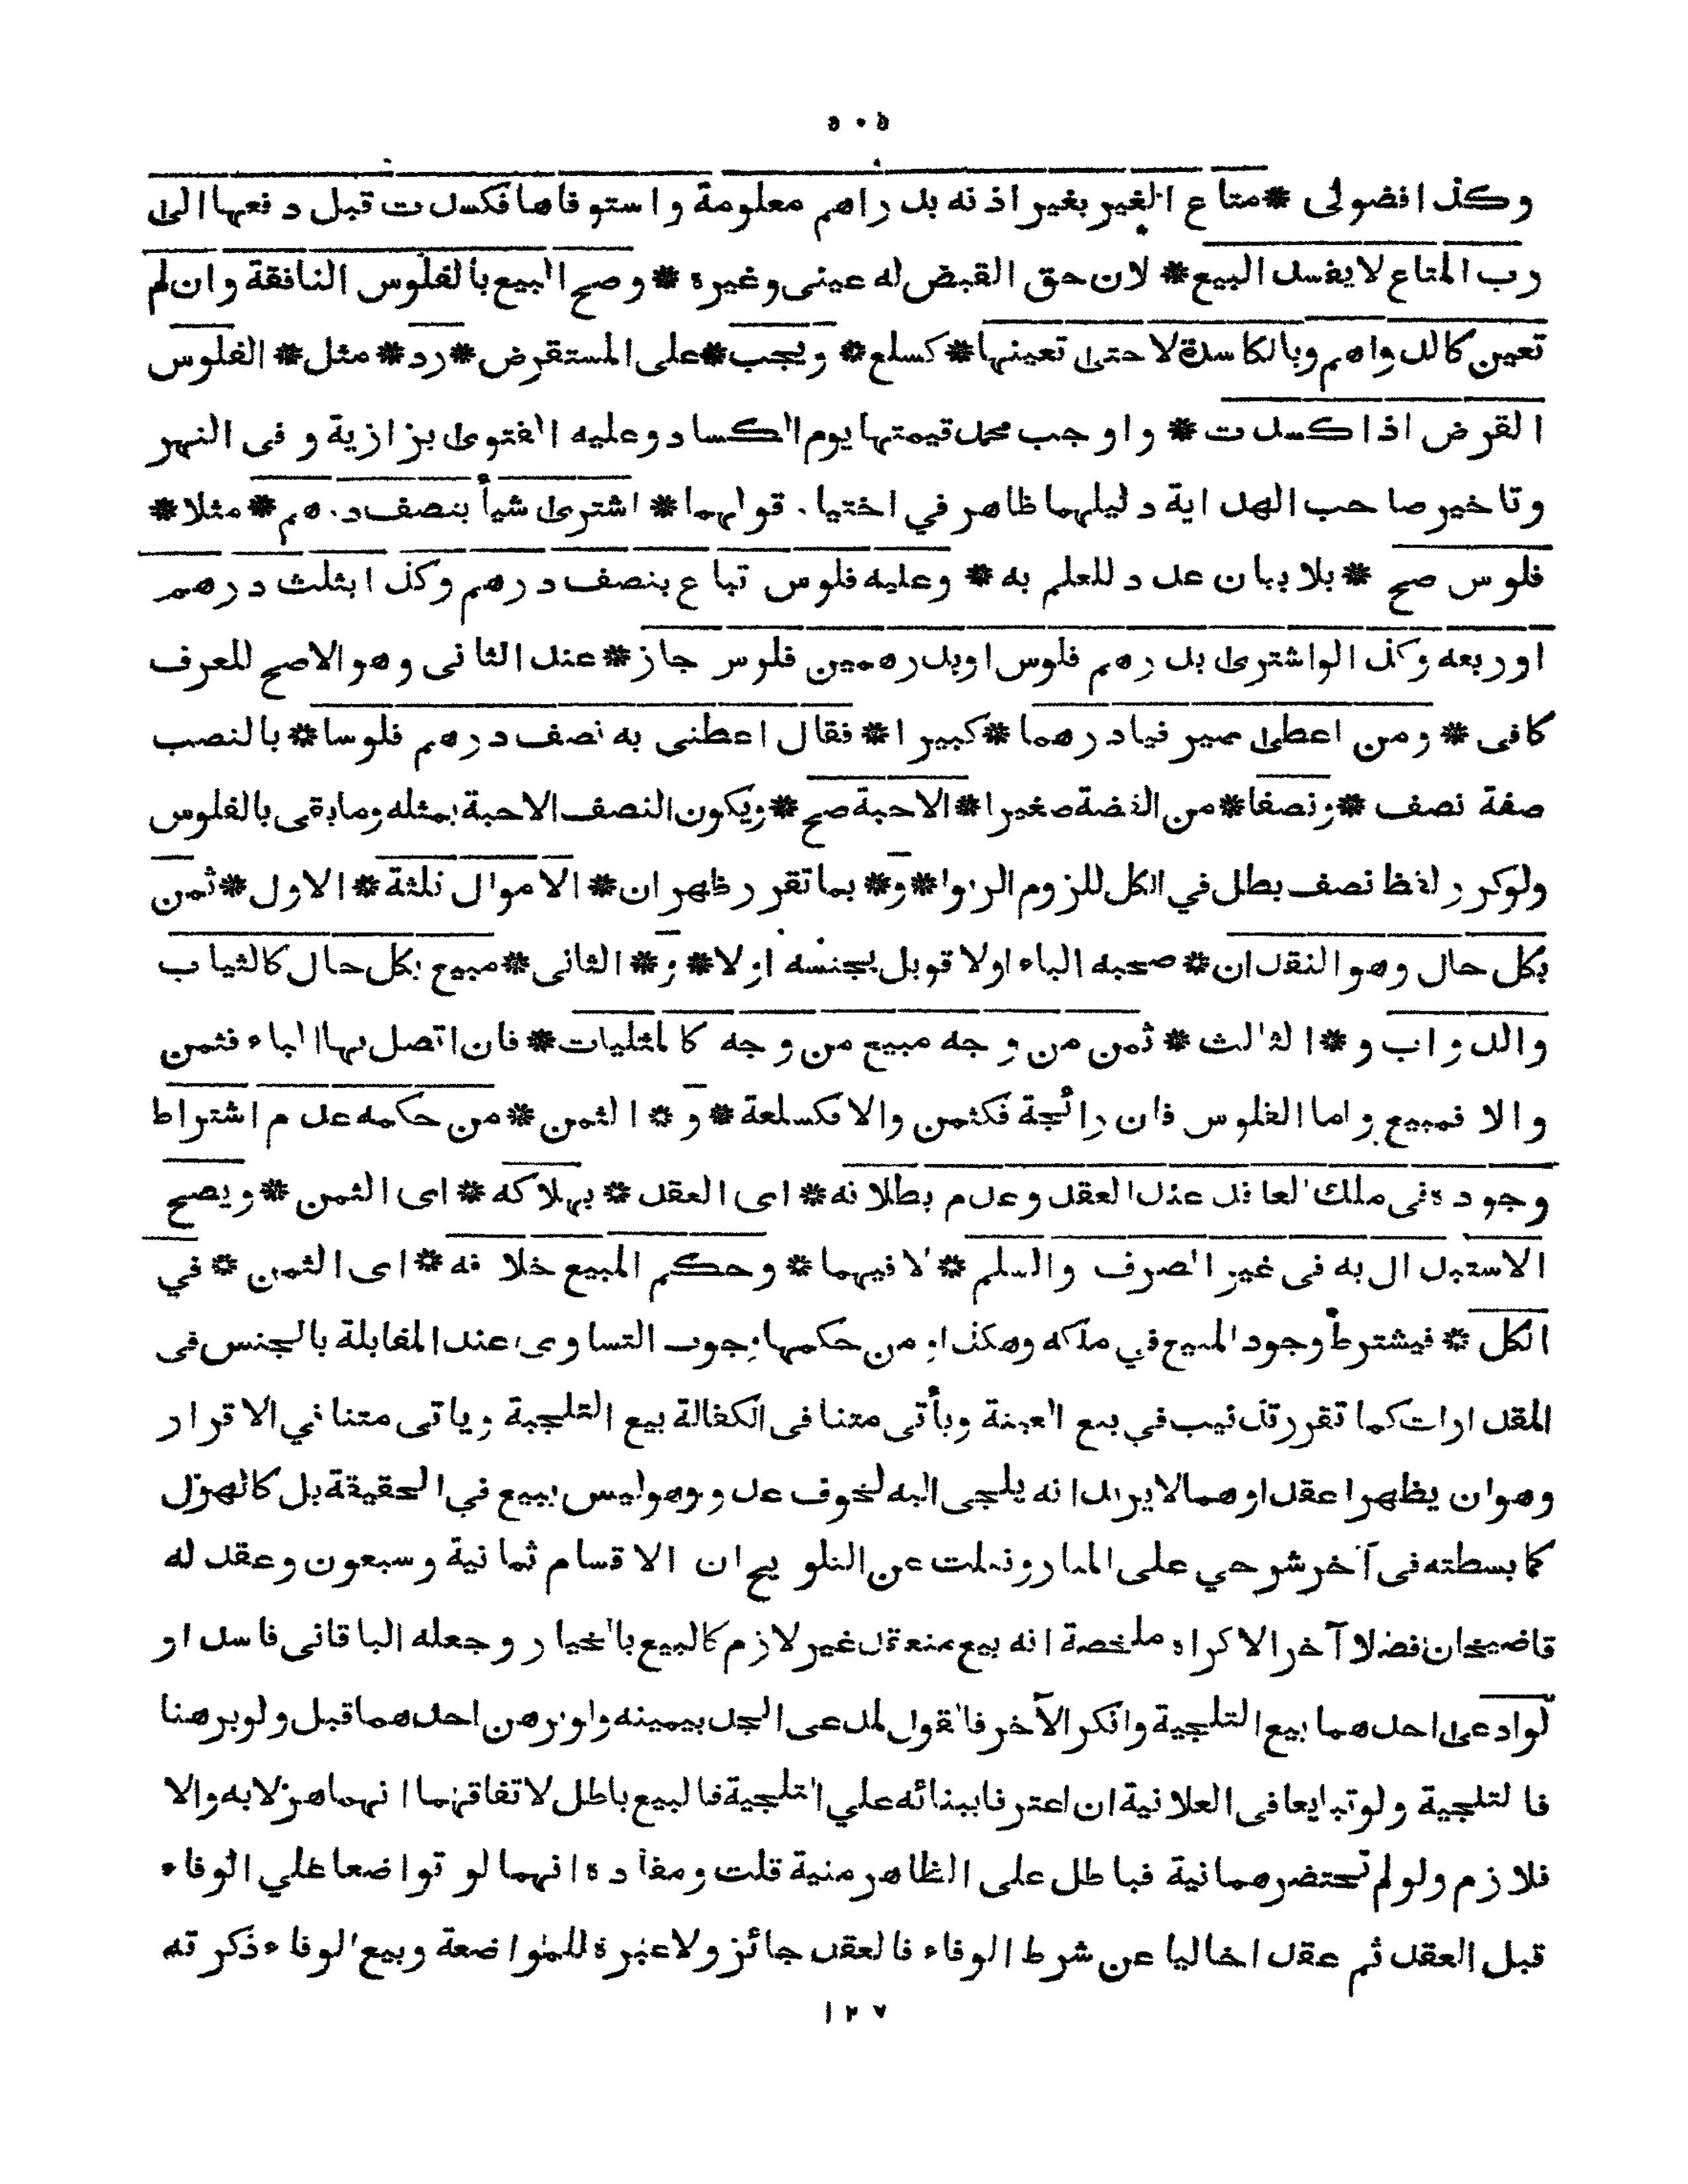 ٥٠٥
وكذا فضولى * متاع الغير بغير اذنه بدراهم معلومة واستوفاها فكسدت قبل دفعها الى
رب المتاع لا يفسد البيع * لان حق القبض له عينى وغيره * وصح البيع بالفلوس النافقة وان لم
تعين كالدراهم وبالكاسدة لا حتى تعينها * كسلع * ويجب * على المستقرض * رد * مثل * الفلوس
القرض اذا كسدت * واوجب محمد قيمتها يوم الكساد وعليه الفتوى بزازية وفى النهر
وتاخير صاحب الهداية دليلهما ظاهر في اختيار قولهما * اشترى شيأ بنصف درهم * مثلا *
فلوس صح * بلا بيان عدد للعلم به * وعليه فلوس تباع بنصف درهم وكذا بثلث درهم
او ربعه وكذا لو اشترى بدرهم فلوس او بدرهمين فلوس جاز * عند الثانى وهو الاصح للعرف
كافى * ومن اعطى صيرفيا درهما * كبيرا * فقال اعطنى به نصف درهم فلوسا * بالنصب
صفة نصف * ونصفا * من الفضة صغيرا * الاحبة صح * ويكون النصف الاحبة بمثله وما بقى بالفلوس
ولو كرر لفظ نصف بطل في الكل للزوم الربوا * و * بما تقرر ظهر ان * الاموال ثلثة * الاول * ثمن
بكل حال وهو النقدان * صحبه الباء اولا قوبل بجنسه اولا * و * الثانى * مبيع بكل حال كالثياب
والدواب و * الثالث * ثمن من وجه مبيع من وجه كالمثليات * فان اتصل بها الباء فثمن
والا فمبيع واما الفلوس فان رائجة فكثمن والا فكسلعة * و * الثمن * من حكمه عدم اشتراط
وجوده فى ملك العاقد عند العقد وعدم بطلانه * اى العقد * بهلاكه * اى الثمن * ويصح
الاستبدال به فى غير الصرف والسلم * لا فيهما * وحكم المبيع خلافه * اى الثمن * في
الكل * فيشترط وجود المبيع في ملكه وهكذا ومن حكمها وجوب التساوى عند المقابلة بالجنس فى
المقدارات كما تقرر تذنيب في بيع العينة ويأتى متنا فى الكفالة بيع التلجية وياتى متنا في الاقرار
وهو ان يظهرا عقدا وهما لا يريدانه يلجى اليه لخوف عدو وهو ليس ببيع في الحقيقة بل كالهزل
كما بسطته فى آخر شرحي على المنار ونقلت عن التلويح ان الاقسام ثمانية وسبعون وعقد له
قاضيخان فصلا آخر الاكراه ملخصة انه بيع منعقد غير لازم كالبيع بالخيار وجعله الباقانى فاسدا و
لو ادعى احدهما بيع التلجية وانكر الآخر فالقول لمدعى الجد بيمينه ولو برهن احدهما قبل ولو برهنا
فالتلجية ولو تبايعا فى العلانية ان اعترفا ببنائه علي التلجية فالبيع باطل لاتفاقهما انهما هزلا به والا
فلازم ولو لم تحتضرهما نية فباطل على الظاهر منية قلت ومفاده انهما لو تواضعا علي الوفاء
قبل العقد ثم عقدا خاليا عن شرط الوفاء فالعقد جائز ولا عبرة للمواضعة وبيع الوفاء ذكرته
١٢٧